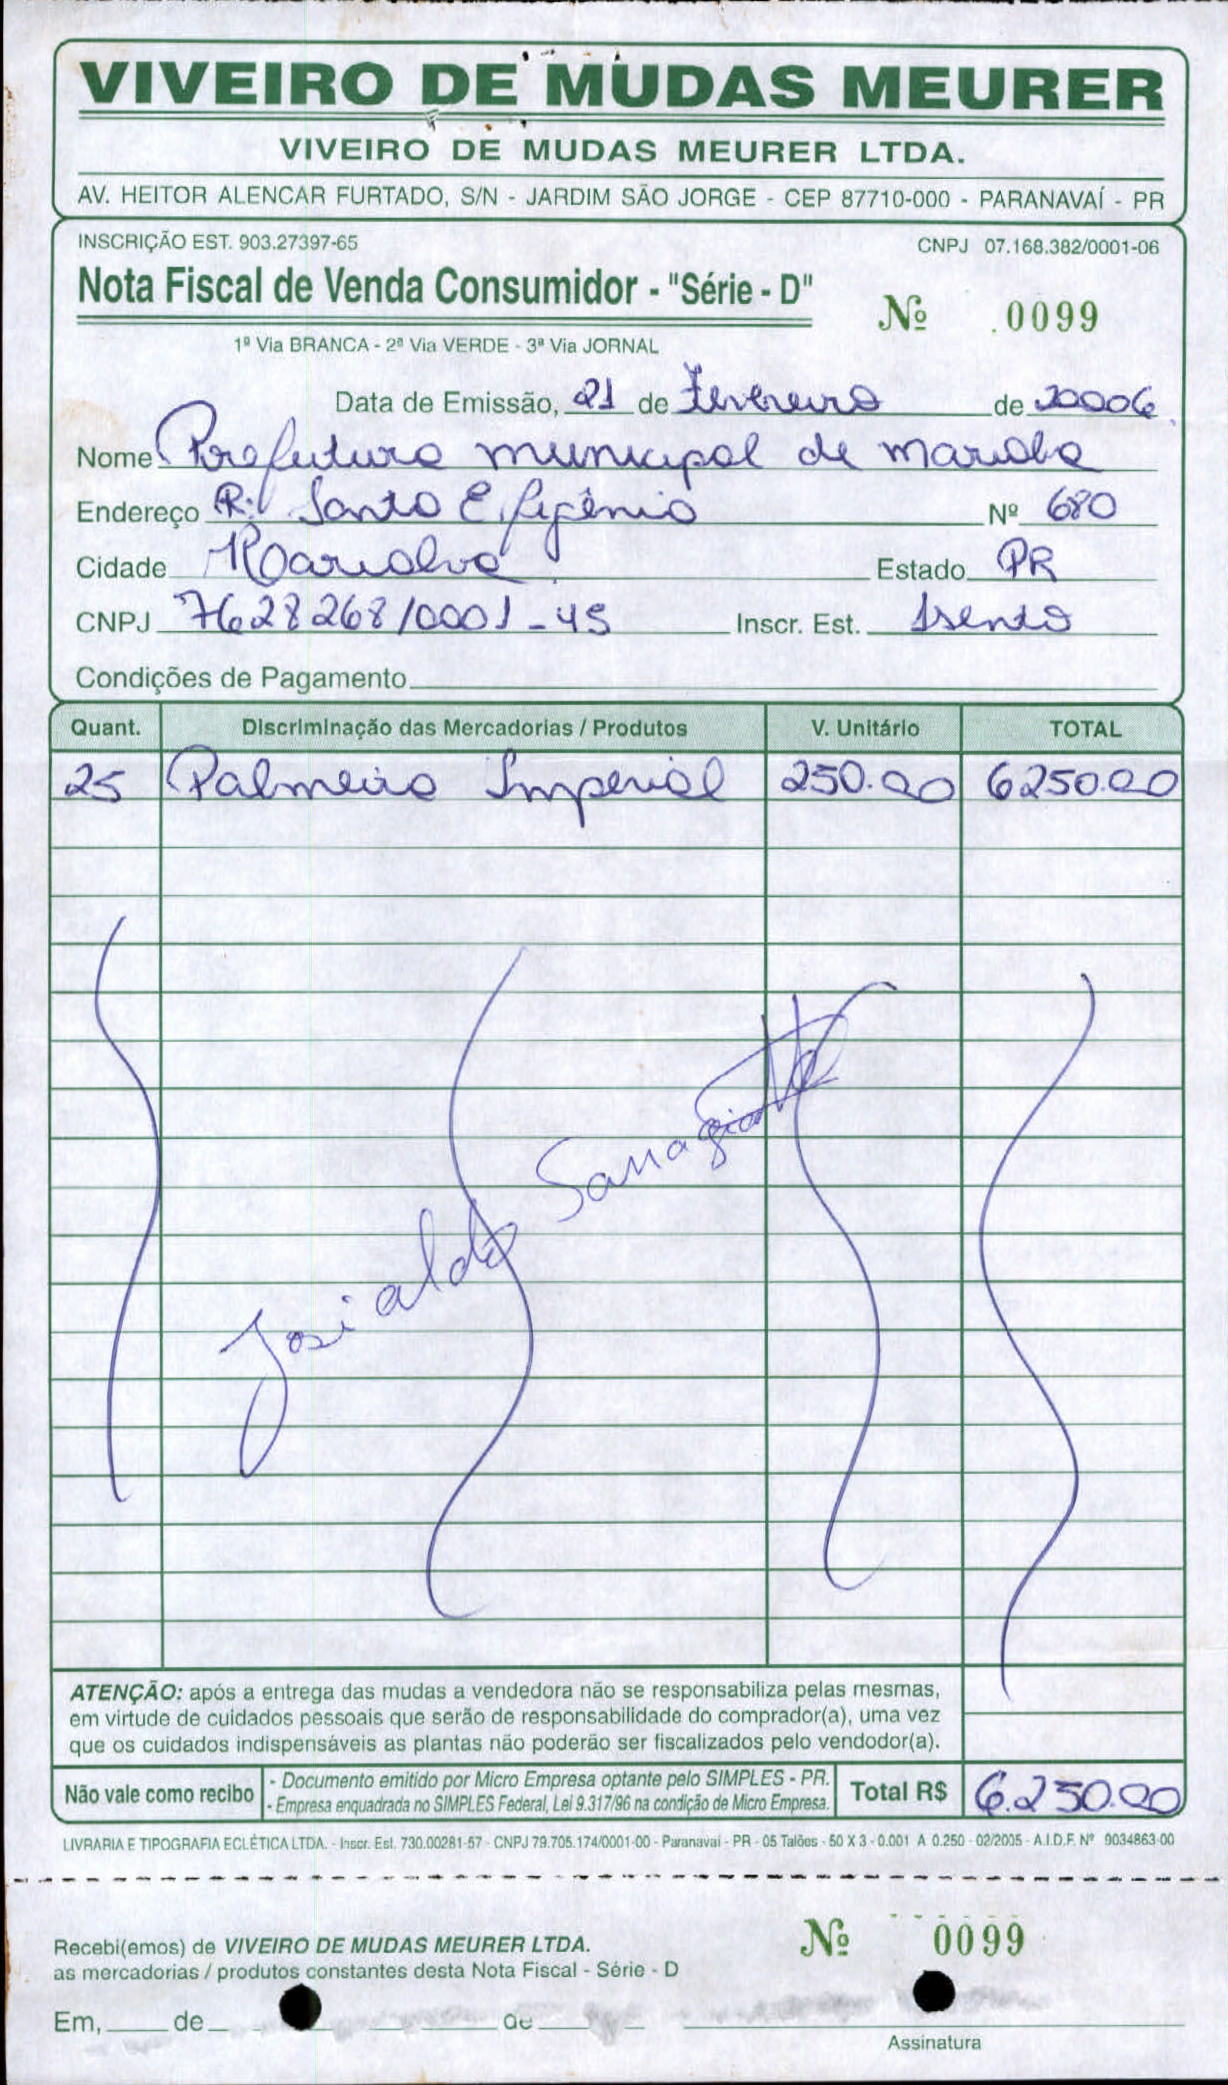 VIVEIRO DE MUDAS MEURER
VIVEIRO DE MUDAS MEURER LTDA.
AV. HEITOR ALENCAR FURTADO, S/N - JARDIM SÃO JORGE - CEP 87710-000 - PARANAVAÍ - PR
INSCRIÇÃO EST. 903.27397-65 CNPJ 07.168.382/0001-06
Nota Fiscal de Venda Consumidor - "Série - D" Nº 0099
1ª Via BRANCA - 2ª Via VERDE - 3ª Via JORNAL
Data de Emissão, 21 de Fevereiro de 20006
Nome Prefeitura municipal de
Endereço R: Santa Efigênia Nº 680
Cidade Marialva Estado PR
CNPJ 7628268/0001-45 Inscr. Est. Isento
Condições de Pagamento
Quant. Discriminação das Mercadorias / Produtos V. Unitário TOTAL
25 Palmeira Imperial 250.00 6250.00
Josialdo
ATENÇÃO: após a entrega das mudas a vendedora não se responsabiliza pelas mesmas,
em virtude de cuidados pessoais que serão de responsabilidade do comprador(a), uma vez
que os cuidados indispensáveis as plantas não poderão ser fiscalizados pelo vendodor(a).
Não vale como recibo - Documento emitido por Micro Empresa optante pelo SIMPLES - PR. Total R$ 6.250.00
- Empresa enquadrada no SIMPLES Federal, Lei 9.317/96 na condição de Micro Empresa.
LIVRARIA E TIPOGRAFIA ECLÉTICA LTDA. - Inscr. Est. 730.00281-57 - CNPJ 79.705.174/0001-00 - Paranavaí - PR - 05 Talões - 50 X 3 - 0.001 A 0.250 - 02/2005 - A.I.D.F. Nº 9034863-00
Recebi(emos) de VIVEIRO DE MUDAS MEURER LTDA. Nº 0099
as mercadorias / produtos constantes desta Nota Fiscal - Série - D
Em, de de
Assinatura